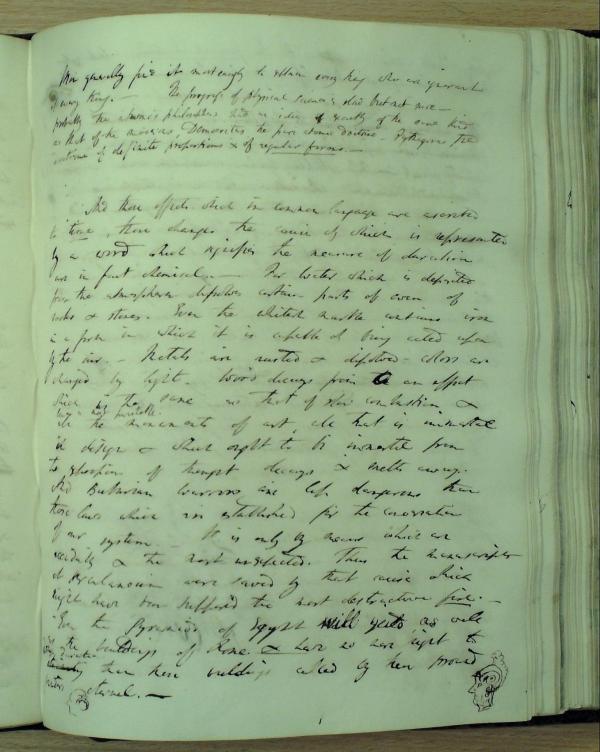 Men generally find it most easy to obtain every thing who are ignorant
of every thing. — The progress of physical science slow but not mere —
probably the atomic philosophers had an idea of exactly of the same kind
as that of the moderns, Democritus the pure atomic doctrine – Pythagoras the
doctrine of definite proportions & of regular forms. —
And those effects which in common language are ascribed
to time, those changes the cause of which is represented
by a word which signifies the measure of duration
are in fact chemical. — For water which is deposited
from the atmosphere dissolves certain parts of even of
rocks & stones. Even the whitest marble contains iron
in a form in which it is capable of being acted upon
by the air. – Metals are rusted & dissolved – colors are
changed by light. Wood decays from an effect
which is the same as that of slow combustion &
not possible
the monuments of art, all that is immortal
in design & which ought to be immortal from
of thought decays & melts away.
And barbarian warriors are less dangerous than
those laws which are established for the conservation
of our system – It is only by means which are
accidental & the most unexpected. Thus the manuscripts
at Herculaneum were saved by that cause which
might have been supposed the most destructive fire. –
Even the Pyramids of Egypt will yield as well
as the buildings of Rome & have no more right to
than these buildings called by their proud
eternal. —